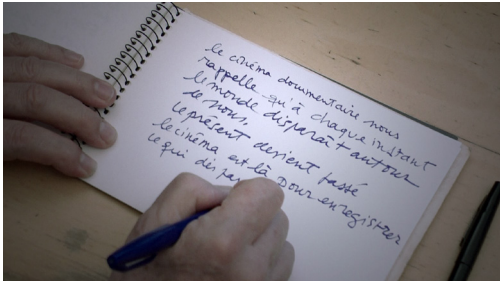 le cinéma documentaire nous
rappelle qu'à chaque instant
le monde disparaît autour
de nous.
le présent devient passé
le cinéma est là pour enregistrer
ce qui dis par